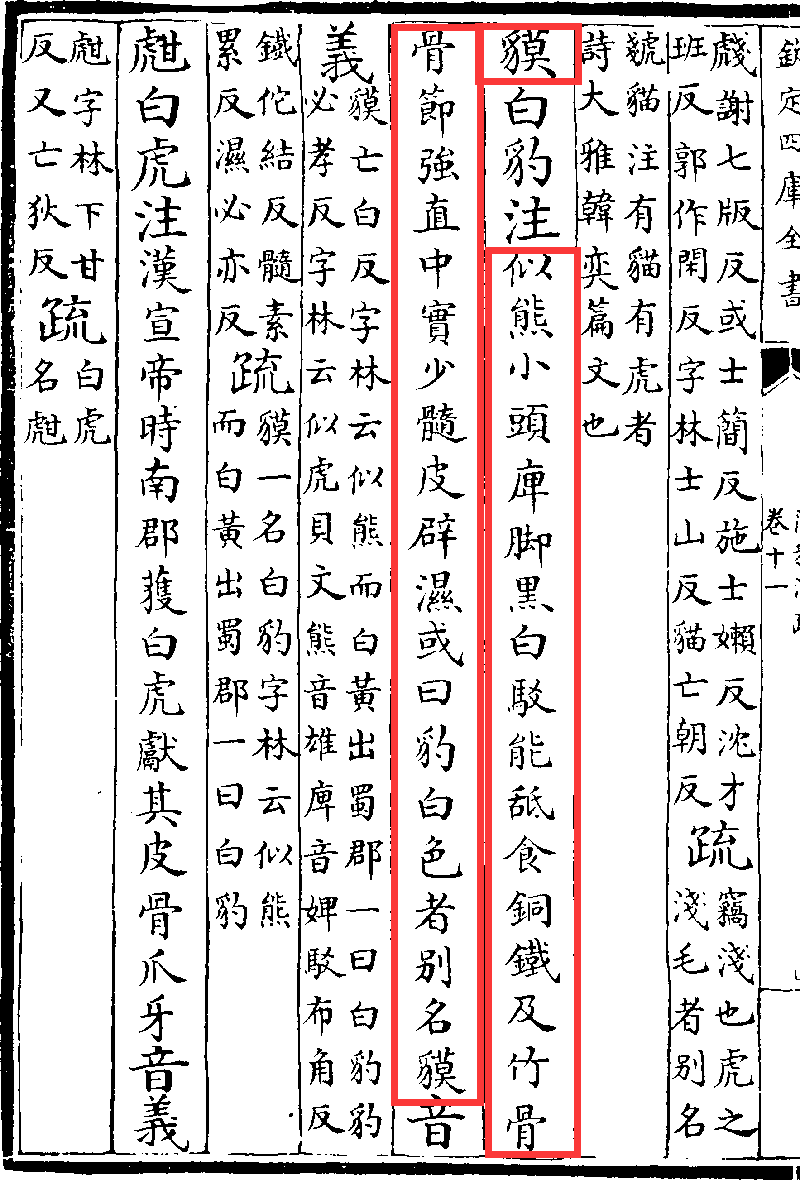 欽定四庫全書
卷十一
虥謝七版反或士簡反施士嬾反沈才
班反郭作閑反字林士山反貓亡朝反
疏
竊淺也虎之
淺毛者別名
虢貓注有貓有虎者
詩大雅韓奕篇文也
貘白豹注似熊小頭庳脚黑白駁能舐食銅鐵及竹骨
骨節強直中實少髓皮辟濕或曰豹白色者別名貘音
義
貘亡白反字林云似熊而白黃出蜀郡一曰白豹豹
必孝反字林云似虎貝文熊音雄庳音婢駁布角反
鐵佗結反髓素
累反濕必亦反
疏
貘一名白豹字林云似熊
而白黃出蜀郡一曰白豹
甝白虎注漢宣帝時南郡獲白虎獻其皮骨爪牙音義
甝字林下甘
反又亡狄反
疏
白虎
名甝